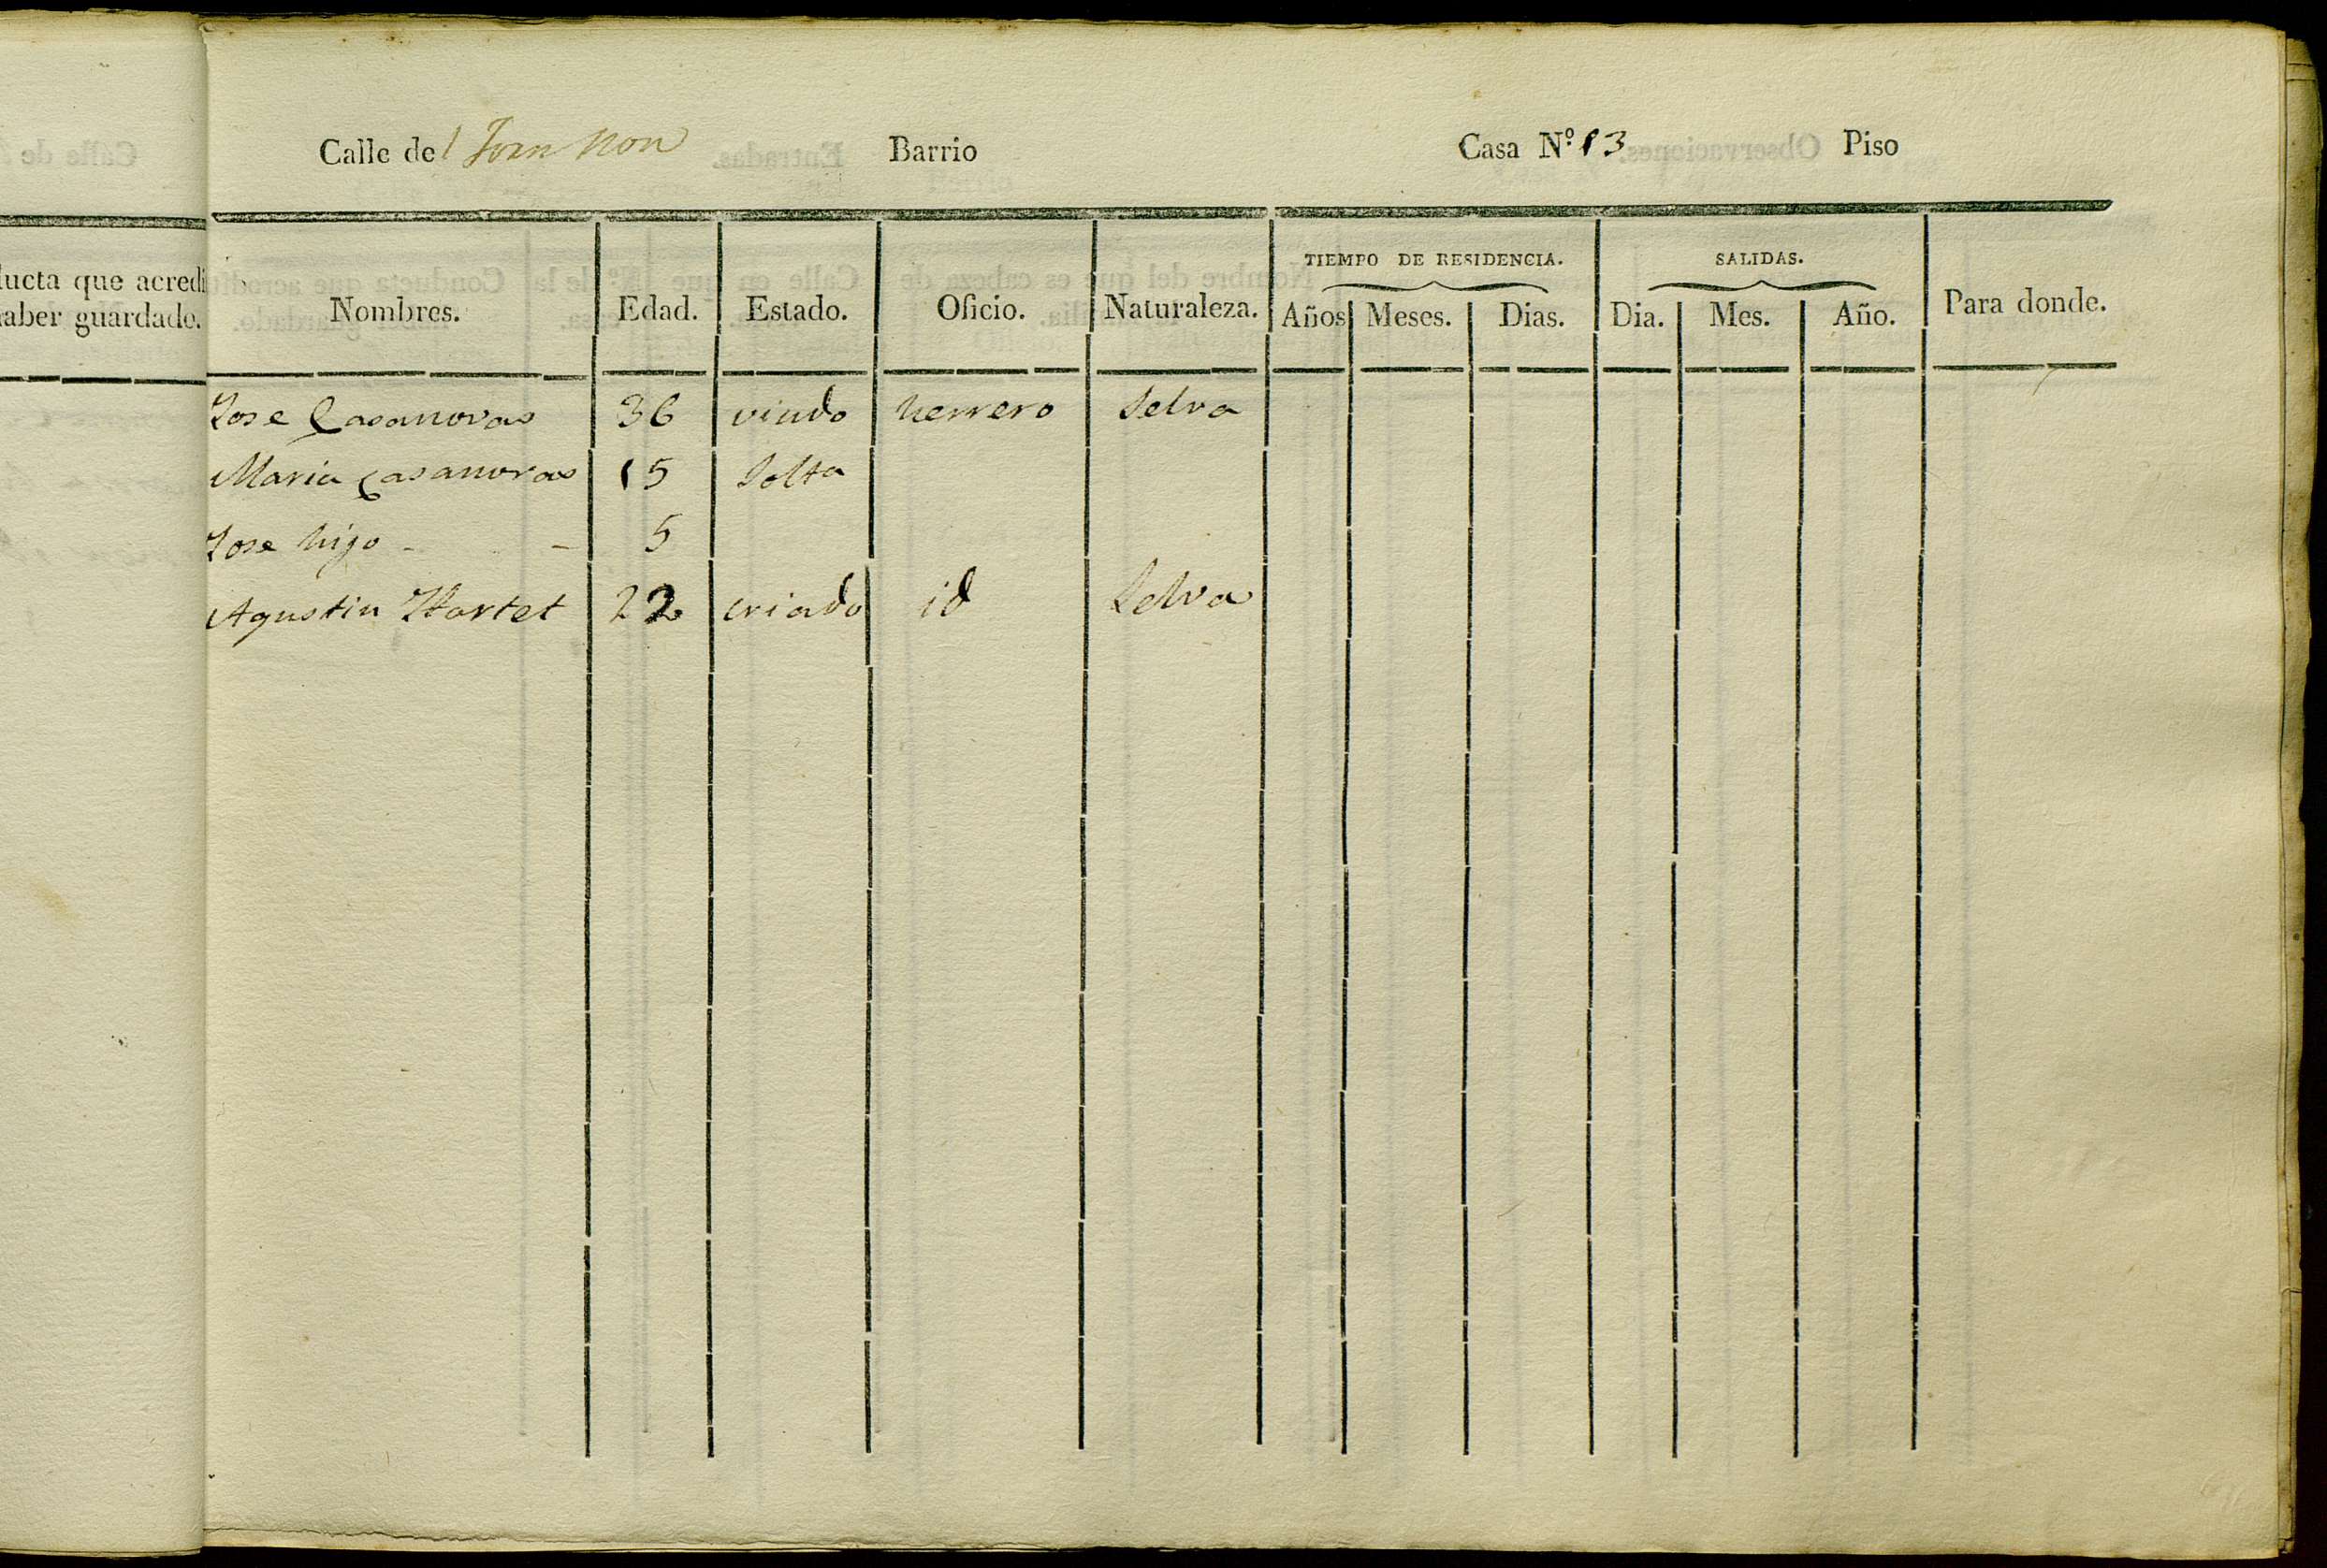 Calle del Forn nou Barrio Casa N.º 13 Piso
ducta que acredi
haber guardado.
Nombres. Edad. Estado. Oficio. Naturaleza. TIEMPO DE RESIDENCIA. Años Meses. Dias. SALIDAS. Dia. Mes. Año. Para donde.
Jose Casanovas 36 viudo herrero Selva
Maria Casanovas 15 Solta
Jose hijo - - 5
Agustin 22 criado id Selva